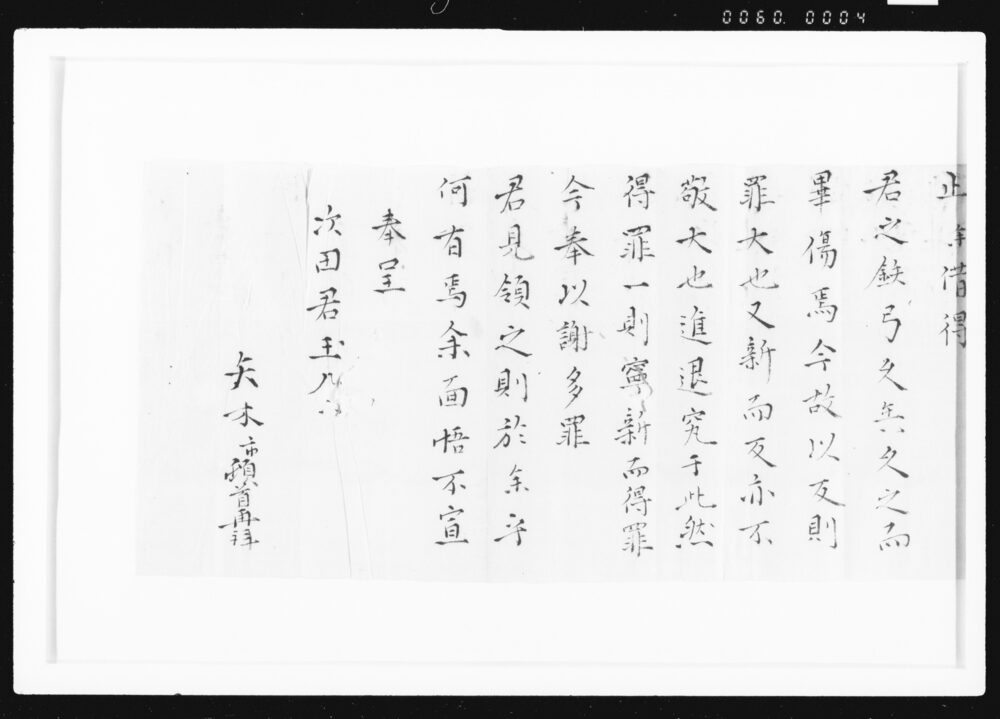 0060. 0004
止年借得
君之鉄弓久矣久之而
畢傷焉今故以反則
罪大也又新而反亦不
敬大也進退究于此然
得罪一則寧新而得罪
今奉以謝多罪
君見領之則於余乎
何有焉余面悟不宣
奉呈
次田君玉几
矢木市頓首再拜